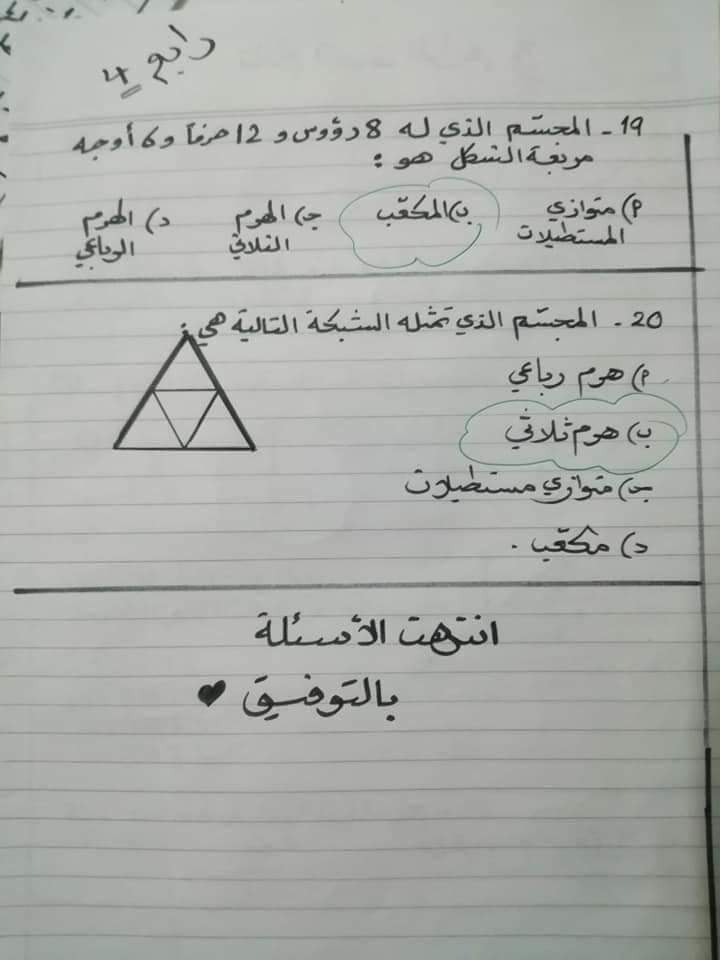 رابع 4
19 - المجسّم الذي له 8 رؤوس و 12 حرفاً و 6 أوجه
مربعة الشكل هو :
أ) متوازي المستطيلات
ب) المكعّب
جـ) الهرم الثلاثي
د) الهرم الرباعي
20 - المجسّم الذي تمثله الشبكة التالية هي :
أ) هرم رباعي
ب) هرم ثلاثي
جـ) متوازي مستطيلات
د) مكعّب .
انتهت الأسئلة
بالتوفيق ♥